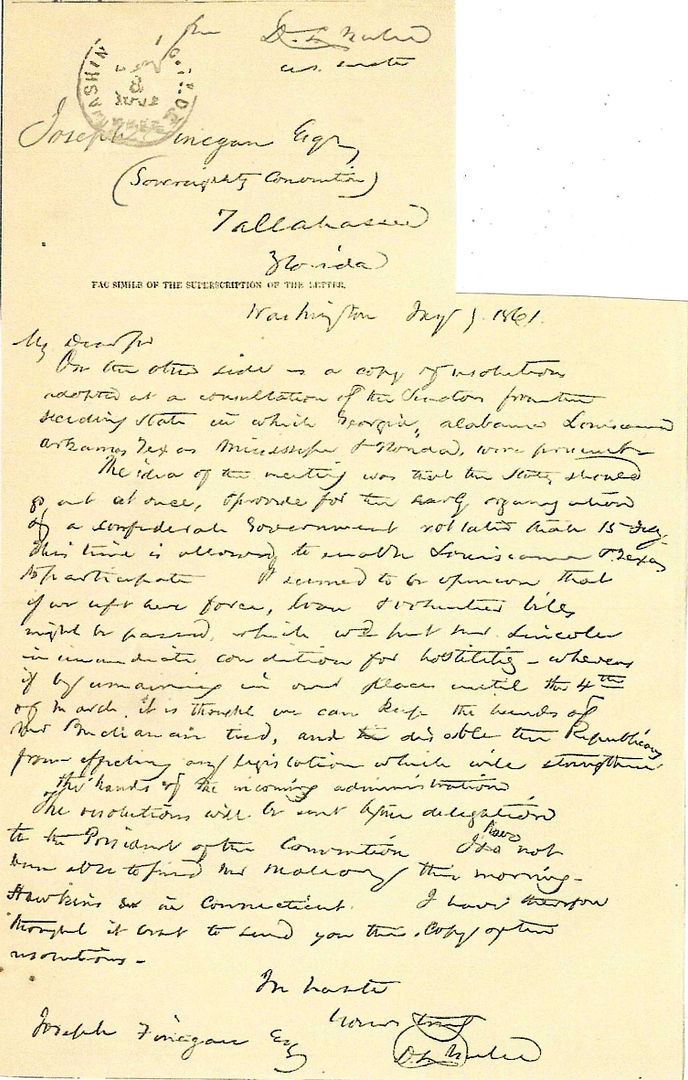 D. L. Yulee
U.S. Senate
WASHIN
Joseph Finegan Esqr,
(Sovereignty Convention)
Tallahassee
Florida
FAC SIMILE OF THE SUPERSCRIPTION OF THE LETTER.
Washington Jany 1861.
My Dear Sir
On the other side is a copy of resolutions
adopted at a consultation of the Senators from the
seceding State in which Georgia, Alabama Louisiana
Arkansas Texas Mississippi & Florida, were present
The idea of the meeting was that the States should
go out at once, & provide for the early organization
of a confederate Government not later than 15 Feby.
This time is allowed to enable Louisiana & Texas
to participate It seemed to be opinion that
if we left here force, loan & volunteer bills
might be passed, which wd put Mr. Lincoln
in immediate condition for hostilities - whereas
if by remaining in our places until the 4th
of March it is thought we can keep the hands of
Mr Buchanan tied, and disable the Republicans
from effecting any legislation which will strengthen
the hands of the incoming administration
The resolutions will be sent by the delegation
to the President of the Convention I have not
been able to find Mr Mallory this morning -
Hawkins is in Connecticut. I have therefore
thought it best to send you this copy of the
resolutions -
In haste
Yours truly
D L Yulee
Joseph Finegan Esq